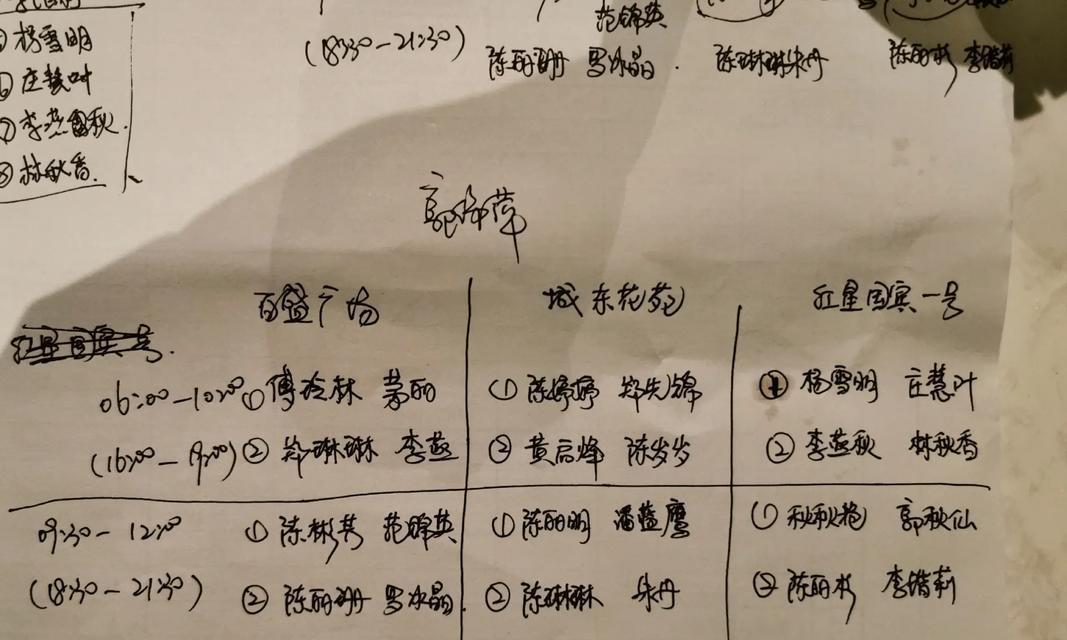 范锦英
⑤ 杨雪明
(18:30-21:30) 陈丽珊 罗冰晶. 陈琳琳 朱丹 陈丽彬 李楷莉
⑥ 庄慧叶
⑦ 李燕秋.
⑧ 林秋香.
百盛广场 城东花苑 红星国宾一号
红星国宾一号.
06:00-10:00 ① 傅冷林 茅丽 ① 陈婷婷 郑先锦 ① 杨雪明 庄慧叶
(16:00-19:00) ② 郑琳琳 李燕 ② 黄启烽 陈岁岁 ② 李燕秋 林秋香
09:30-12:00 ① 陈彬芳 范锦英 ① 陈丽明 潘蓝鹰 ① 秋秋艳 郭秋仙
(18:30-21:30) ② 陈丽珊 罗冰晶. ② 陈琳琳 朱丹 ② 陈丽彬 李楷莉